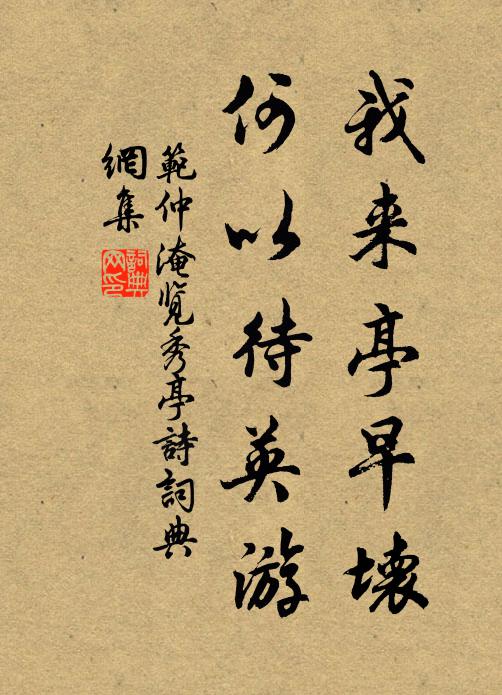 我来亭早壞
何以待英游
範仲淹览秀亭詩詞典
網集
詞典网印